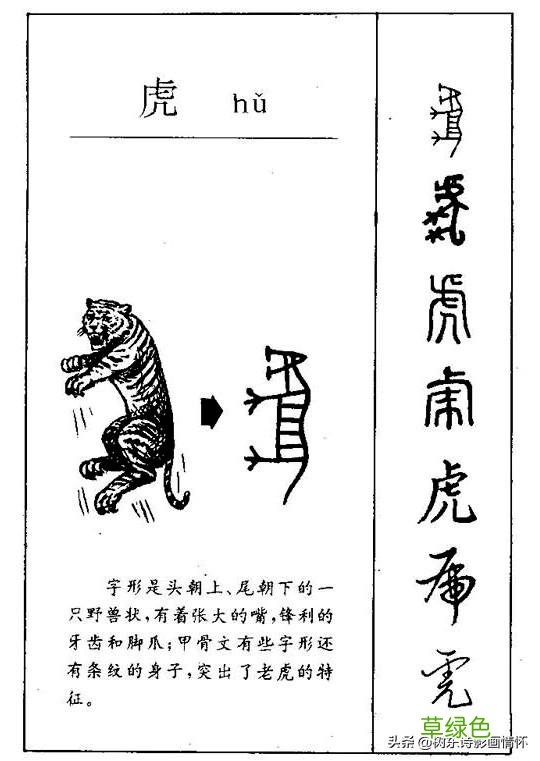 虎 hǔ
字形是头朝上、尾朝下的一
只野兽状,有着张大的嘴,锋利的
牙齿和脚爪;甲骨文有些字形还
有条纹的身子,突出了老虎的特
征。
虎
虎
草绿色
头条 @诗影画情怀